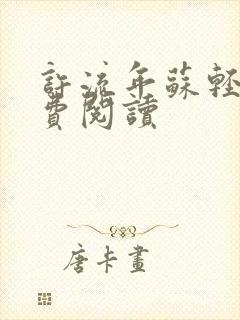 許流年蘇輕
費閱讀
唐卡畫